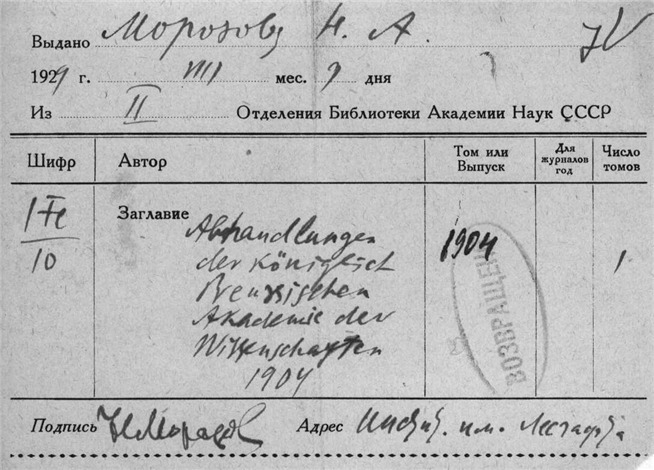 Выдано Морозову Н. А. IV
1929 г. VIII мес. 9 дня
Из II Отделения Библиотеки Академии Наук СССР
Шифр Автор Том или Выпуск Для журналов год Число томов
Заглавие
10
Abhandlungen
der Königlich
Preussischen
Akademie der
Wissenschaften
1904
1904
1
ВОЗВРАЩЕН
Подпись Н Морозов Адрес Инст. им. Лесгафта